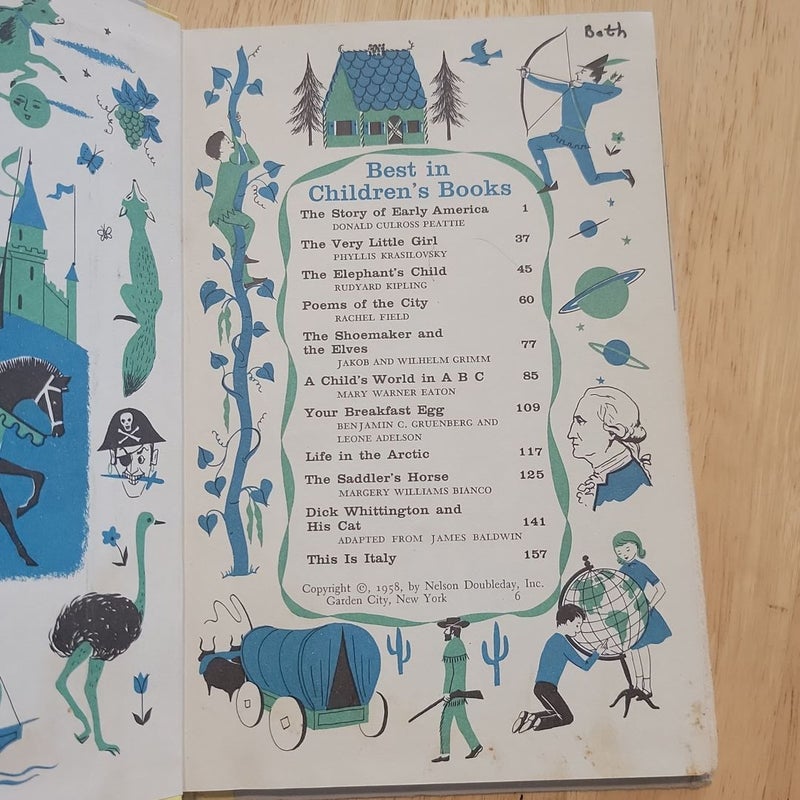 Beth
Best in
Children's Books
The Story of Early America 1
DONALD CULROSS PEATTIE
The Very Little Girl 37
PHYLLIS KRASILOVSKY
The Elephant's Child 45
RUDYARD KIPLING
Poems of the City 60
RACHEL FIELD
The Shoemaker and
the Elves 77
JAKOB AND WILHELM GRIMM
A Child's World in A B C 85
MARY WARNER EATON
Your Breakfast Egg 109
BENJAMIN C. GRUENBERG AND
LEONE ADELSON
Life in the Arctic 117
The Saddler's Horse 125
MARGERY WILLIAMS BIANCO
Dick Whittington and
His Cat 141
ADAPTED FROM JAMES BALDWIN
This Is Italy 157
Copyright ©, 1958, by Nelson Doubleday, Inc.
Garden City, New York 6